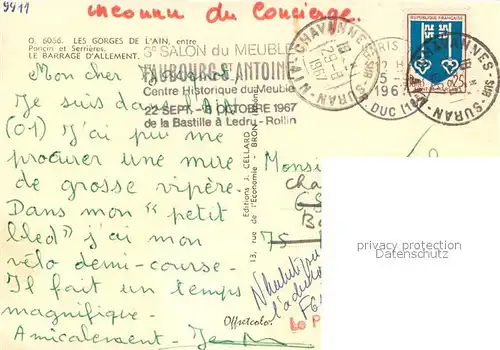 9911
inconnu du Concierge.
O. 6056. LES GORGES DE L'AIN, entre
Poncin et Serrières.
LE BARRAGE D'ALLEMENT.
3e SALON du MEUBLE
FAUBOURG S. ANTOINE
Centre Historique du Meuble
22 SEPT. - 8 OCTOBRE 1967
de la Bastille à Ledru - Rollin
NIVIGNE CHAVANNES SUR SURAN
18 H
29-8
1967
REPUBLIQUE FRANÇAISE
PARIS
12 H
5-
1967
R. DUC (18
CHAVANNES SUR SURAN
Mon cher
Je suis dans l'AIN
(01) J'ai pu me
procurer une mue
de grosse vipère.
Dans mon "petit
bled" j'ai mon
vélo demi-course.
Il fait un temps
magnifique.
Amicalement
Editions J. CELLARD
13, rue de l'Economie - BRON (Rhône)
Monsi
Cha
75
N'habite pas
l'adresse
Offsetcolor
Le P
privacy protection
Datenschutz